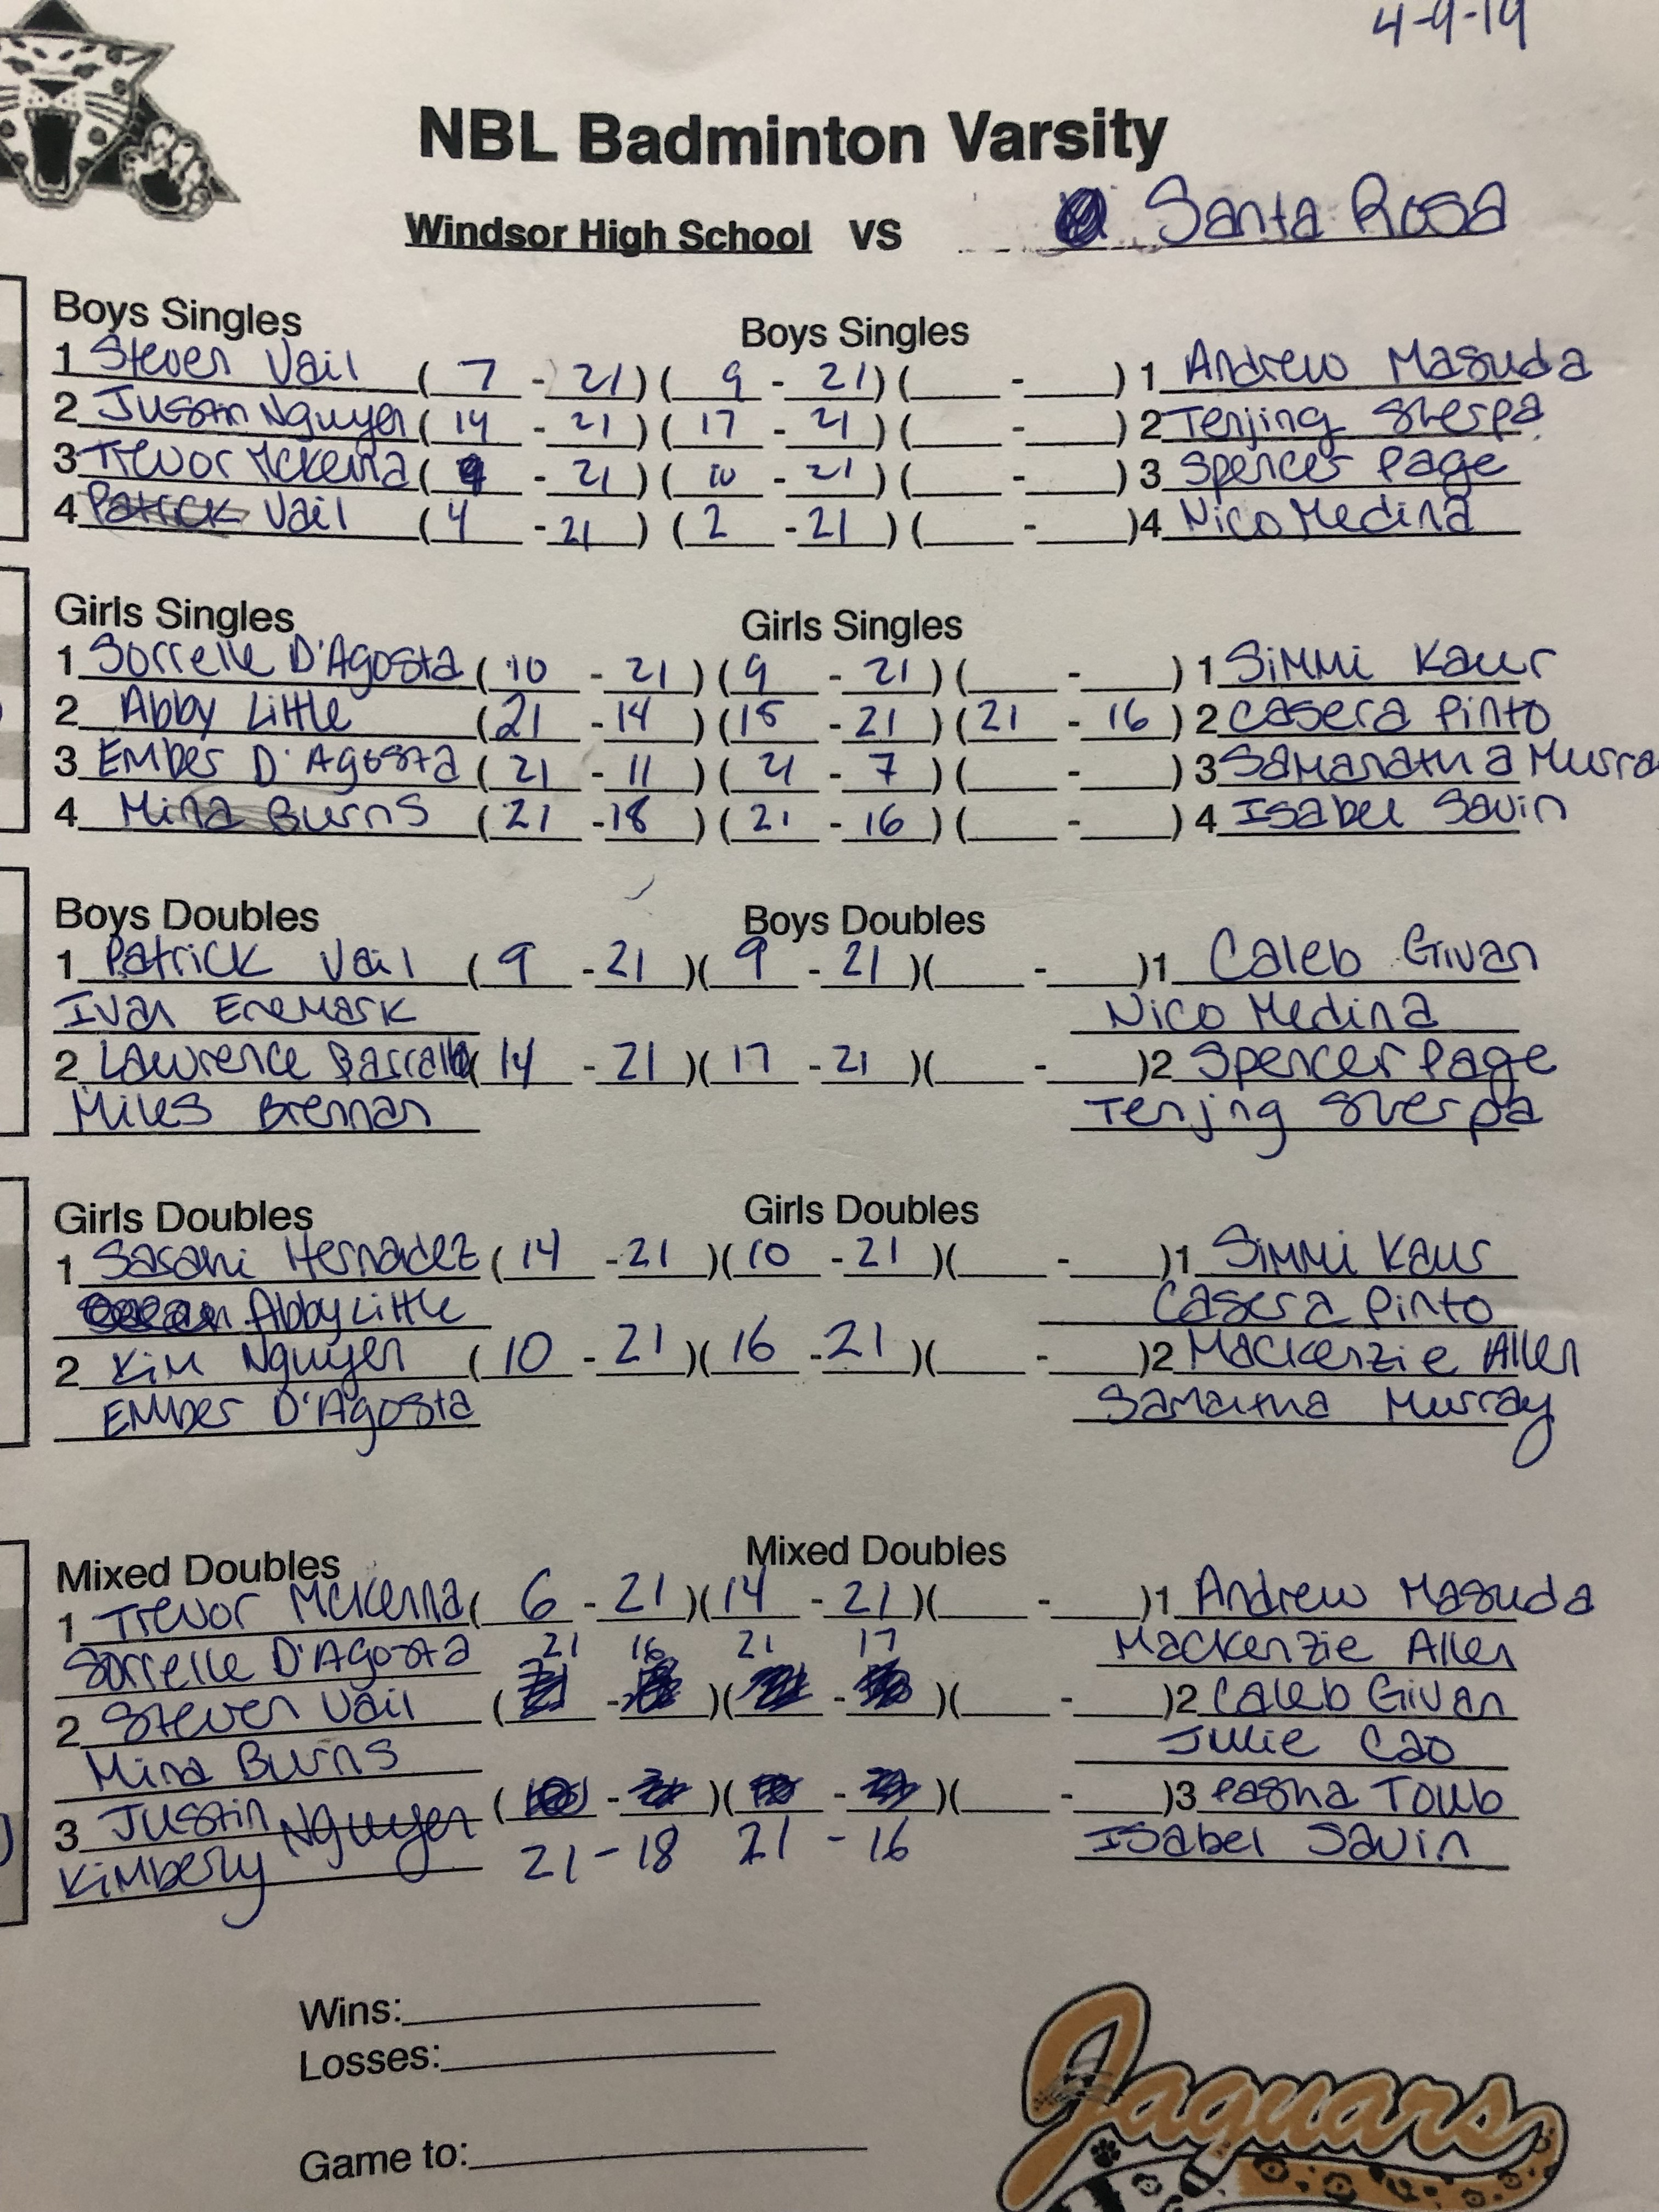 4-9-19
NBL Badminton Varsity
Windsor High School VS Santa Rosa
Boys Singles Boys Singles
1 Steven Vail ( 7 - 21 ) ( 9 - 21 ) ( - ) 1 Andrew Masuda
2 Justin Nguyen ( 14 - 21 ) ( 17 - 21 ) ( - ) 2 Tenjing Sherpa
3 Trevor Mckenna ( 9 - 21 ) ( 10 - 21 ) ( - ) 3 Spencer Page
4 Patrick Vail ( 4 - 21 ) ( 2 - 21 ) ( - ) 4 Nico Medina
Girls Singles Girls Singles
1 Sorrelle D'Agosta ( 10 - 21 ) ( 9 - 21 ) ( - ) 1 Simmi Kaur
2 Abby Little ( 21 - 14 ) ( 15 - 21 ) ( 21 - 16 ) 2 Casera Pinto
3 Ember D'Agosta ( 21 - 11 ) ( 21 - 7 ) ( - ) 3 Samanatha Murra
4 Mina Burns ( 21 - 18 ) ( 21 - 16 ) ( - ) 4 Isabel Savin
Boys Doubles Boys Doubles
1 Patrick Vail ( 9 - 21 ) ( 9 - 21 ) ( - ) 1 Caleb Givan
Ivan Enemark Nico Medina
2 Lawrence ( 14 - 21 ) ( 17 - 21 ) ( - ) 2 Spencer Page
Miles Brennan Tenjing Sherpa
Girls Doubles Girls Doubles
1 Sasani Hernadez ( 14 - 21 ) ( 10 - 21 ) ( - ) 1 Simmi Kaur
Abby Little Casera Pinto
2 Kim Nguyen ( 10 - 21 ) ( 16 - 21 ) ( - ) 2 Mackenzie Allen
Ember D'Agosta Samantha Murray
Mixed Doubles Mixed Doubles
1 Trevor McKenna ( 6 - 21 ) ( 14 - 21 ) ( - ) 1 Andrew Masuda
Sorrelle D'Agosta 21 16 21 17 Mackenzie Allen
2 Steven Vail ( - ) ( - ) ( - ) 2 Caleb Givan
Mina Burns Julie Cao
3 Justin Nguyen ( - ) ( - ) ( - ) 3 Pasha Toub
Kimberly 21 - 18 21 - 16 Isabel Savin
Wins:
Losses:
Game to:
Jaguars